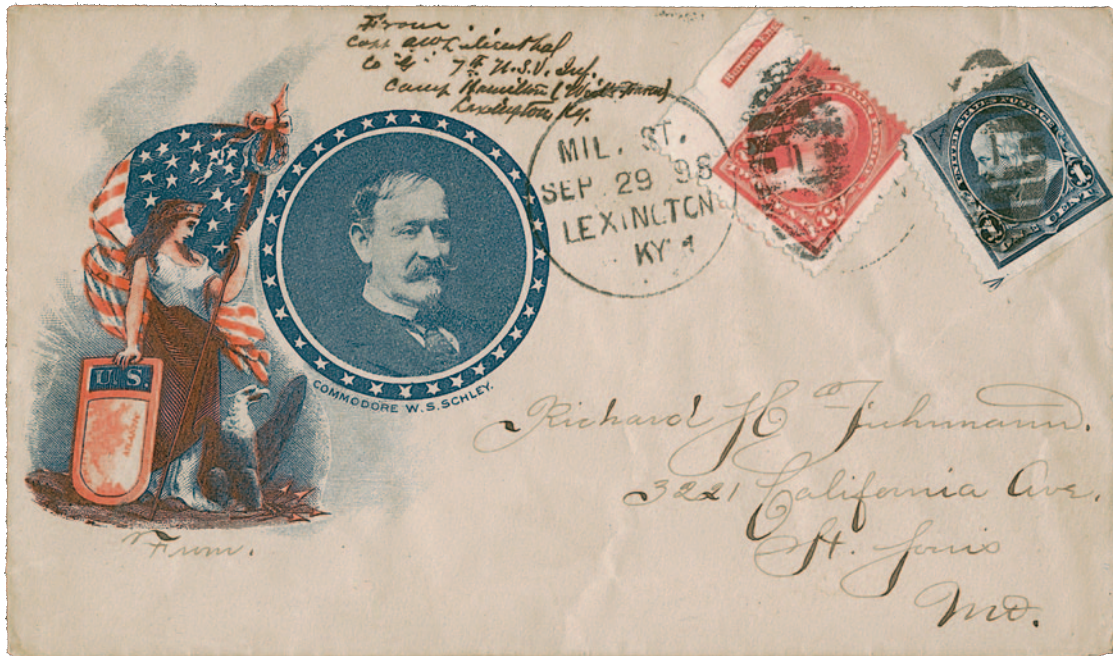 From.
Corp. AW Lilienthal
Co "G" 7th U.S.V. Inf.
Camp Hamilton (Weil's Farm)
Lexington, Ky.
MIL. ST.
SEP 29 98
LEXINGTON
KY
Bureau, Eng
UNITED STATES POSTAGE
ONE CENT
1
U.S.
COMMODORE W. S. SCHLEY.
From.
Richard H Fuhrmann.
3221 California Ave.
St. Louis
Mo.